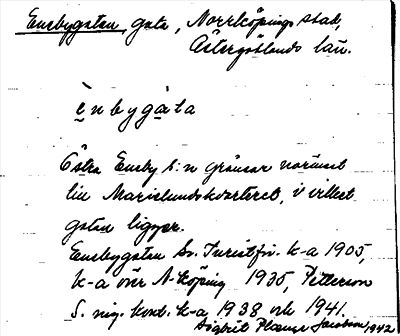 Enebygatan, gata, Norrköpings stad,
Östergötlands län.
ènbygàta
Östra Eneby s:n gränsar närmast
till Marielundskvarteret, i vilket
gatan ligger.
Enebygatan Sv. Turistför. k-a 1905,
k-a över N-köping 1935, Petterson
S. nig. kont. k-a 1938 och 1941.
Sigbrit Plænge Jacobson, 1942